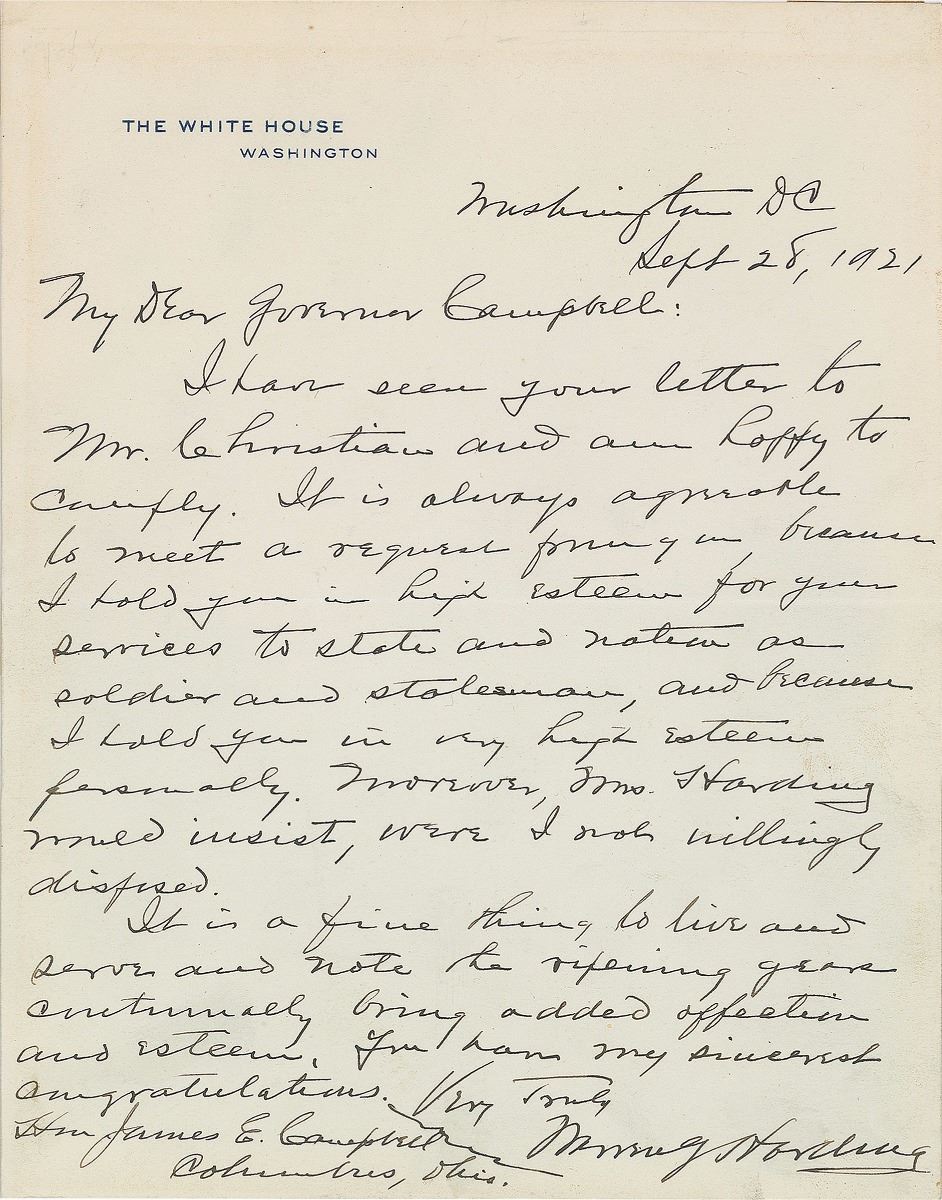 THE WHITE HOUSE
WASHINGTON
Washington DC
Sept 28, 1921
My Dear Governor Campbell:
I have seen your letter to
Mr. Christian and am happy to
comply. It is always agreeable
to meet a request from you, because
I hold you in high esteem for your
services to state and nation as
soldier and statesman, and because
I hold you in very high esteem
personally. Moreover, Mrs. Harding
would insist, were I not willingly
disposed.
It is a fine thing to live and
serve and note the ripening years
continually bring added affection
and esteem. You have my sincerest
congratulations. Very Truly
Hon James E. Campbell
Warren G Harding
Columbus, Ohio.